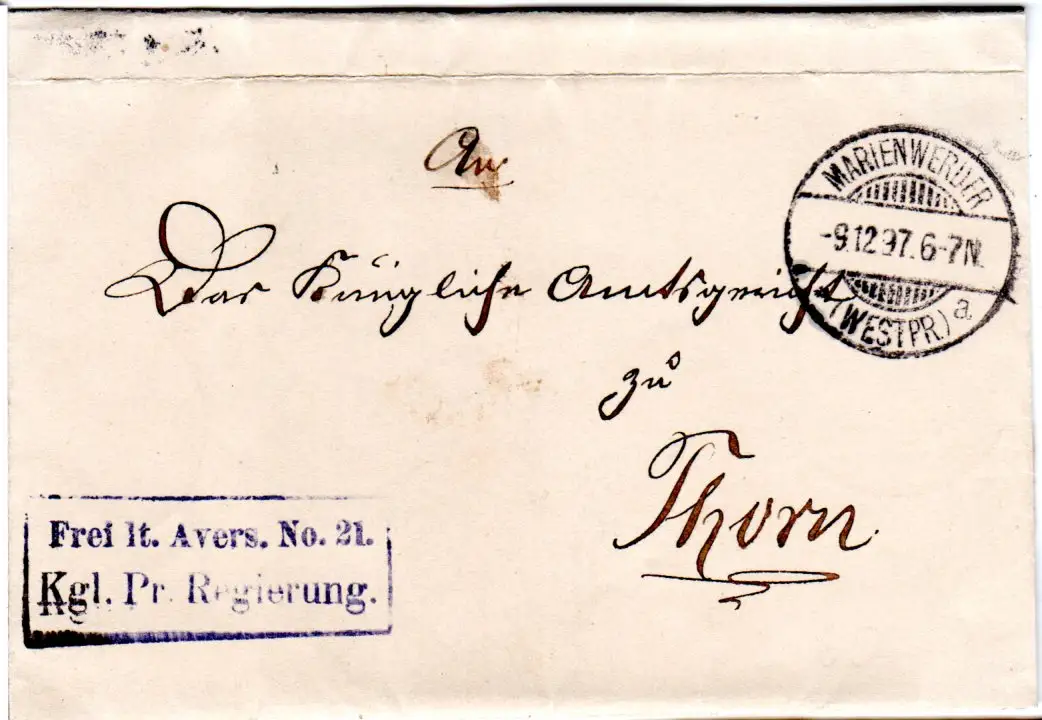 An
Das Königliche Amtsgericht
zu
Thorn
MARIENWERDER
-9.12.97.6-7N.
(WESTPR.) a
Frei lt. Avers. No. 21.
Kgl. Pr. Regierung.